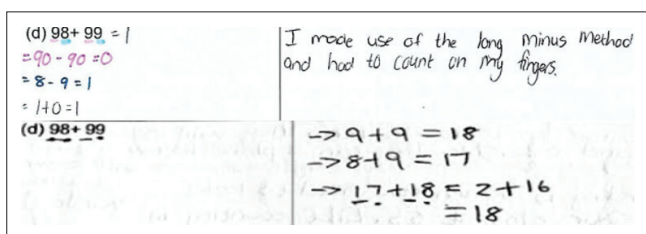 (d) 98+ 99 = 1
=90 - 90 =0
= 8 - 9 = 1
= 1+0 = 1
I made use of the long minus method
and had to count on my fingers.
(d) 98+ 99
→ 9 + 9 = 18
→ 8+9 = 17
→ 17 + 18 = 2 + 16
= 18